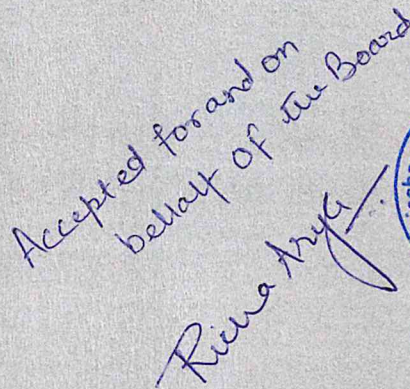 Accepted for and on
behalf of the Board
Arya